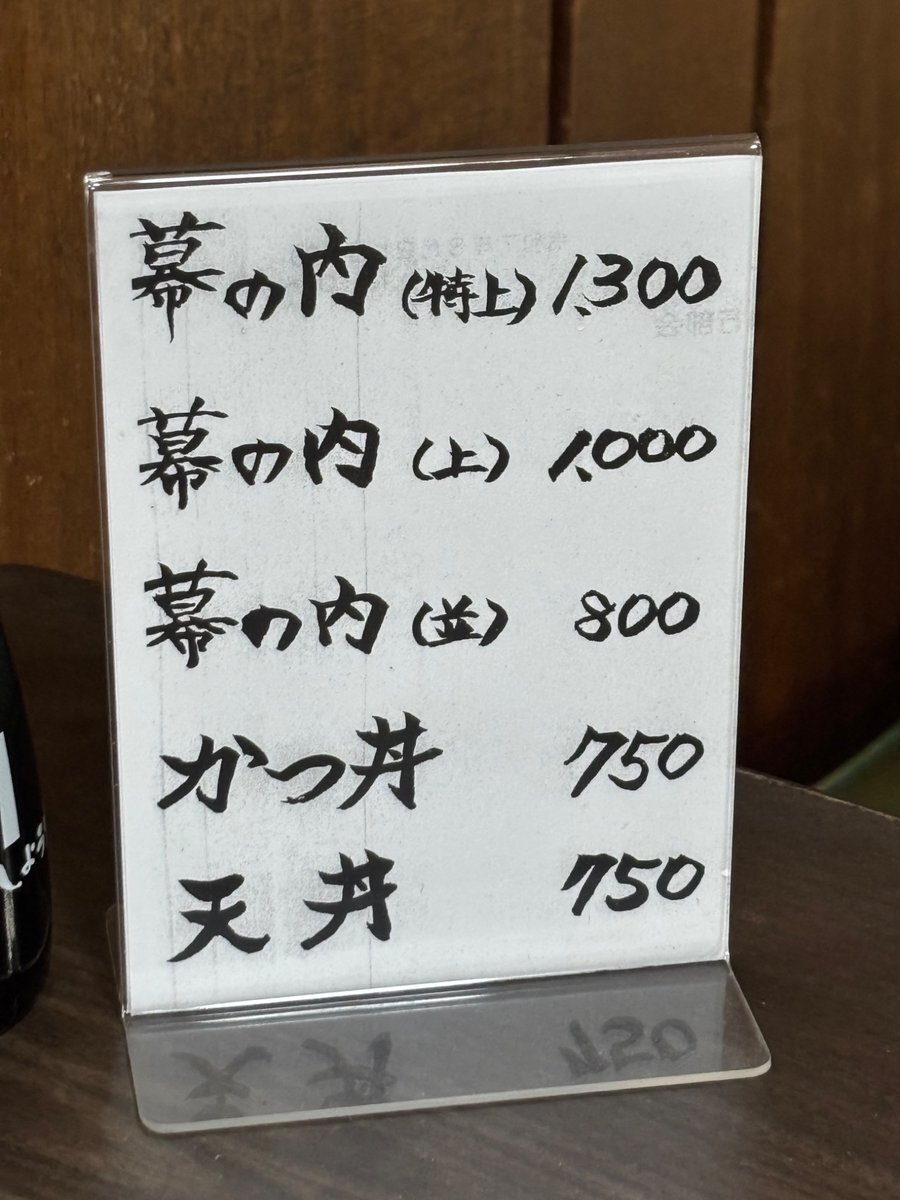 幕の内(特上) 1,300
幕の内(上) 1,000
幕の内(並) 800
かつ丼 750
天丼 750